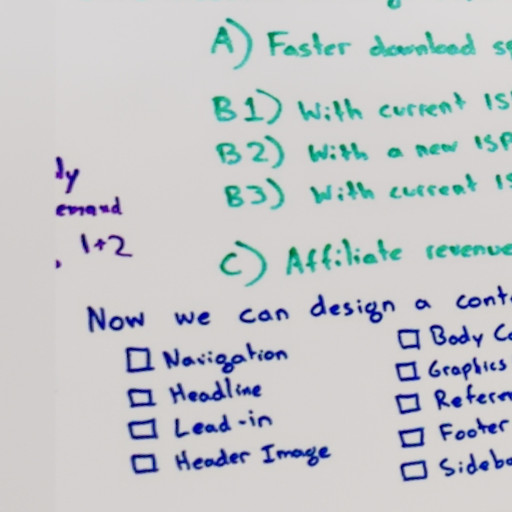 A) Faster download
B1) With current
B2) With a new ISP
B3) With current
C) Affiliate revenue
1+2
Now we can design a
Navigation
Headline
Lead-in
Header Image
Body
Graphics
Footer